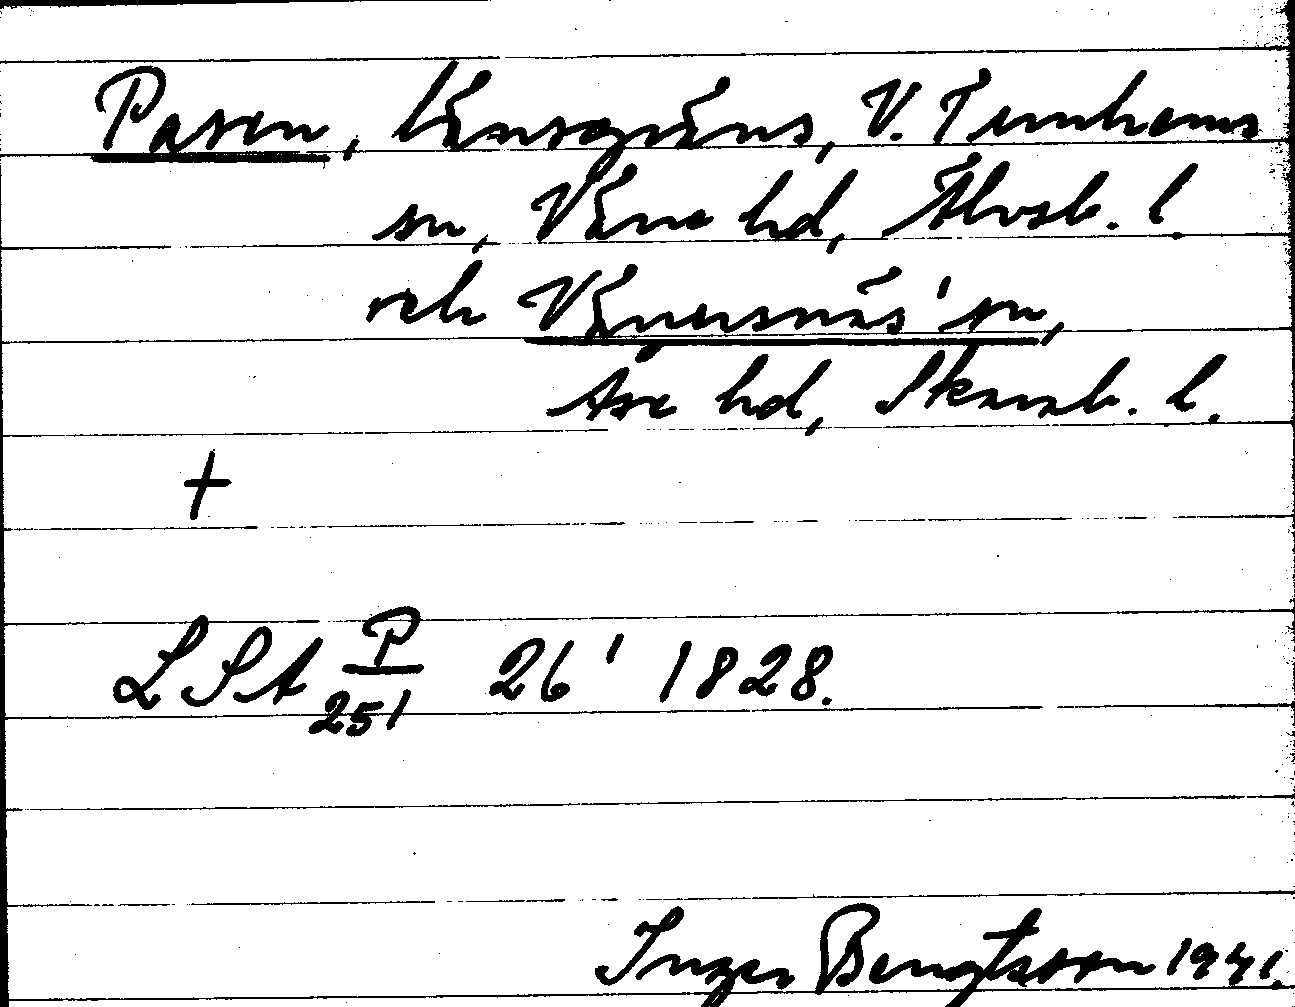 Pasen, länsgräns, V. Tunhems
sn, Väne hd, Älvsb. l.
och Vänersnäs' sn,
Åse hd, Skarab. l.
+
LSA P/251 26' 1828.
Inger Bengtsson 1941.